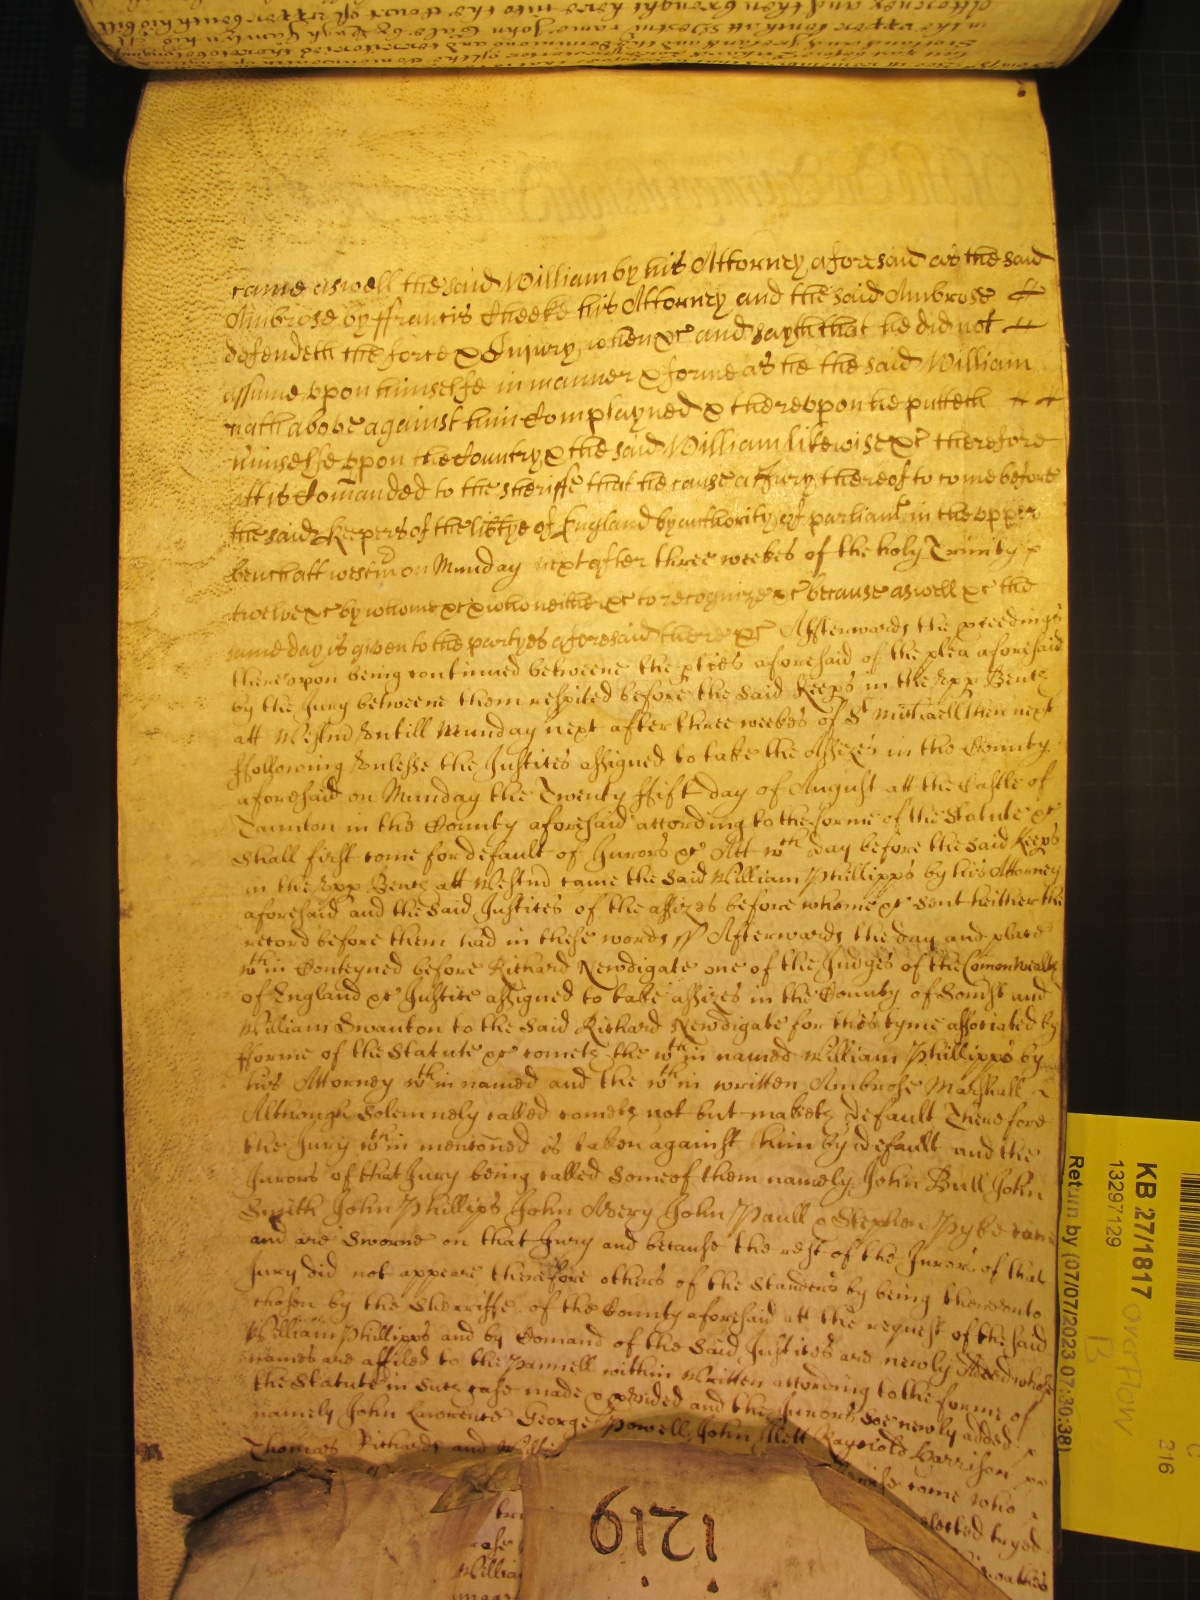 came aswell the said William by his Attorney aforesaid as the said
Ambrose by ffrancis Cheeke his Attorney and the said Ambrose
defendeth the force & Injury when &c and sayth that he did not
assume upon himselfe in manner & forme as he the said William
hath above against him Complayned & thereupon he putteth
himselfe upon the Country & the said William likewise &c therefore
itt is Comanded to the Sheriffe that he cause a Jury thereof to come before
the said Keepers of the libtye of England by authority of parliamt in the upper
bench att westmr on Munday next after three weekes of the holy Trinity
twelve &c by whome &c & who neither &c to recognize &c because aswell &c the
same day is given to the partyes aforesaid there &c Afterwards the pceedings
thereupon being continued betweene the pties aforesaid of the plea aforesaid
by the Jury betweene them respited before the said Keeps in the Upp Bench
att Westmr untill Munday next after three weekes of St Michaell then next
ffollowing unlesse the Justices assigned to take the Assizes in the County
aforesaid on Munday the Twenty ffift day of August att the Castle of
Taunton in the County aforesaid according to the forme of the Statute &c
shall first come for default of Jurors &c Att wch day before the said Keeps
in the Upp Bench att Westmr came the said William Phillipps by his Attorney
aforesaid and the said Justices of the assizes before whome &c sent hether the
record before them had in these words ss Afterwards the day and place
wthin Conteyned before Richard Newdigate one of the Judges of the Comon Wealth
of England &c Justice assigned to take assizes in the County of Somst and
William Swanton to the said Richard Newdigate for this tyme associated by
fforme of the Statute &c cometh the wthin named William Phillipps by
his Attorney wthin named and the wthin written Ambrose Marshall
Although solemnely called cometh not but maketh default Therefore
the Jury wthin mencioned is taken against him by default and the
Jurors of that Jury being called some of them namely John Bull John
Smith John Phillips John Avery John Paull & Stephen Pyke came
and are Sworne on that Jury and because the rest of the Jurors of that
Jury did not appeare therefore others of the Standers by being thereunto
chosen by the Sherriffe of the County aforesaid att the request of the said
William Phillipps and by Comand of the said Justices are newly Added whose
names are affiled to the Pannell within Written according to the forme of
the Statute in such case made & pvided and the Jurors soe newly added
namely John Lawrence George Powell John Harrison
Thomas Richards and come who
elected tryed
case
Willia
1219
KB 27/1817
13297129
Return by (07/07/2023 07:30:38)
overflow
B
C
216